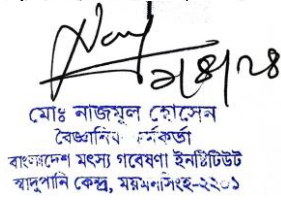 ২/৪/২৪
মোঃ নাজমুল হোসেন
বৈজ্ঞানিক কর্মকর্তা
বাংলাদেশ মৎস্য গবেষণা ইনষ্টিটিউট
স্বাদুপানি কেন্দ্র, ময়মনসিংহ-২২০১